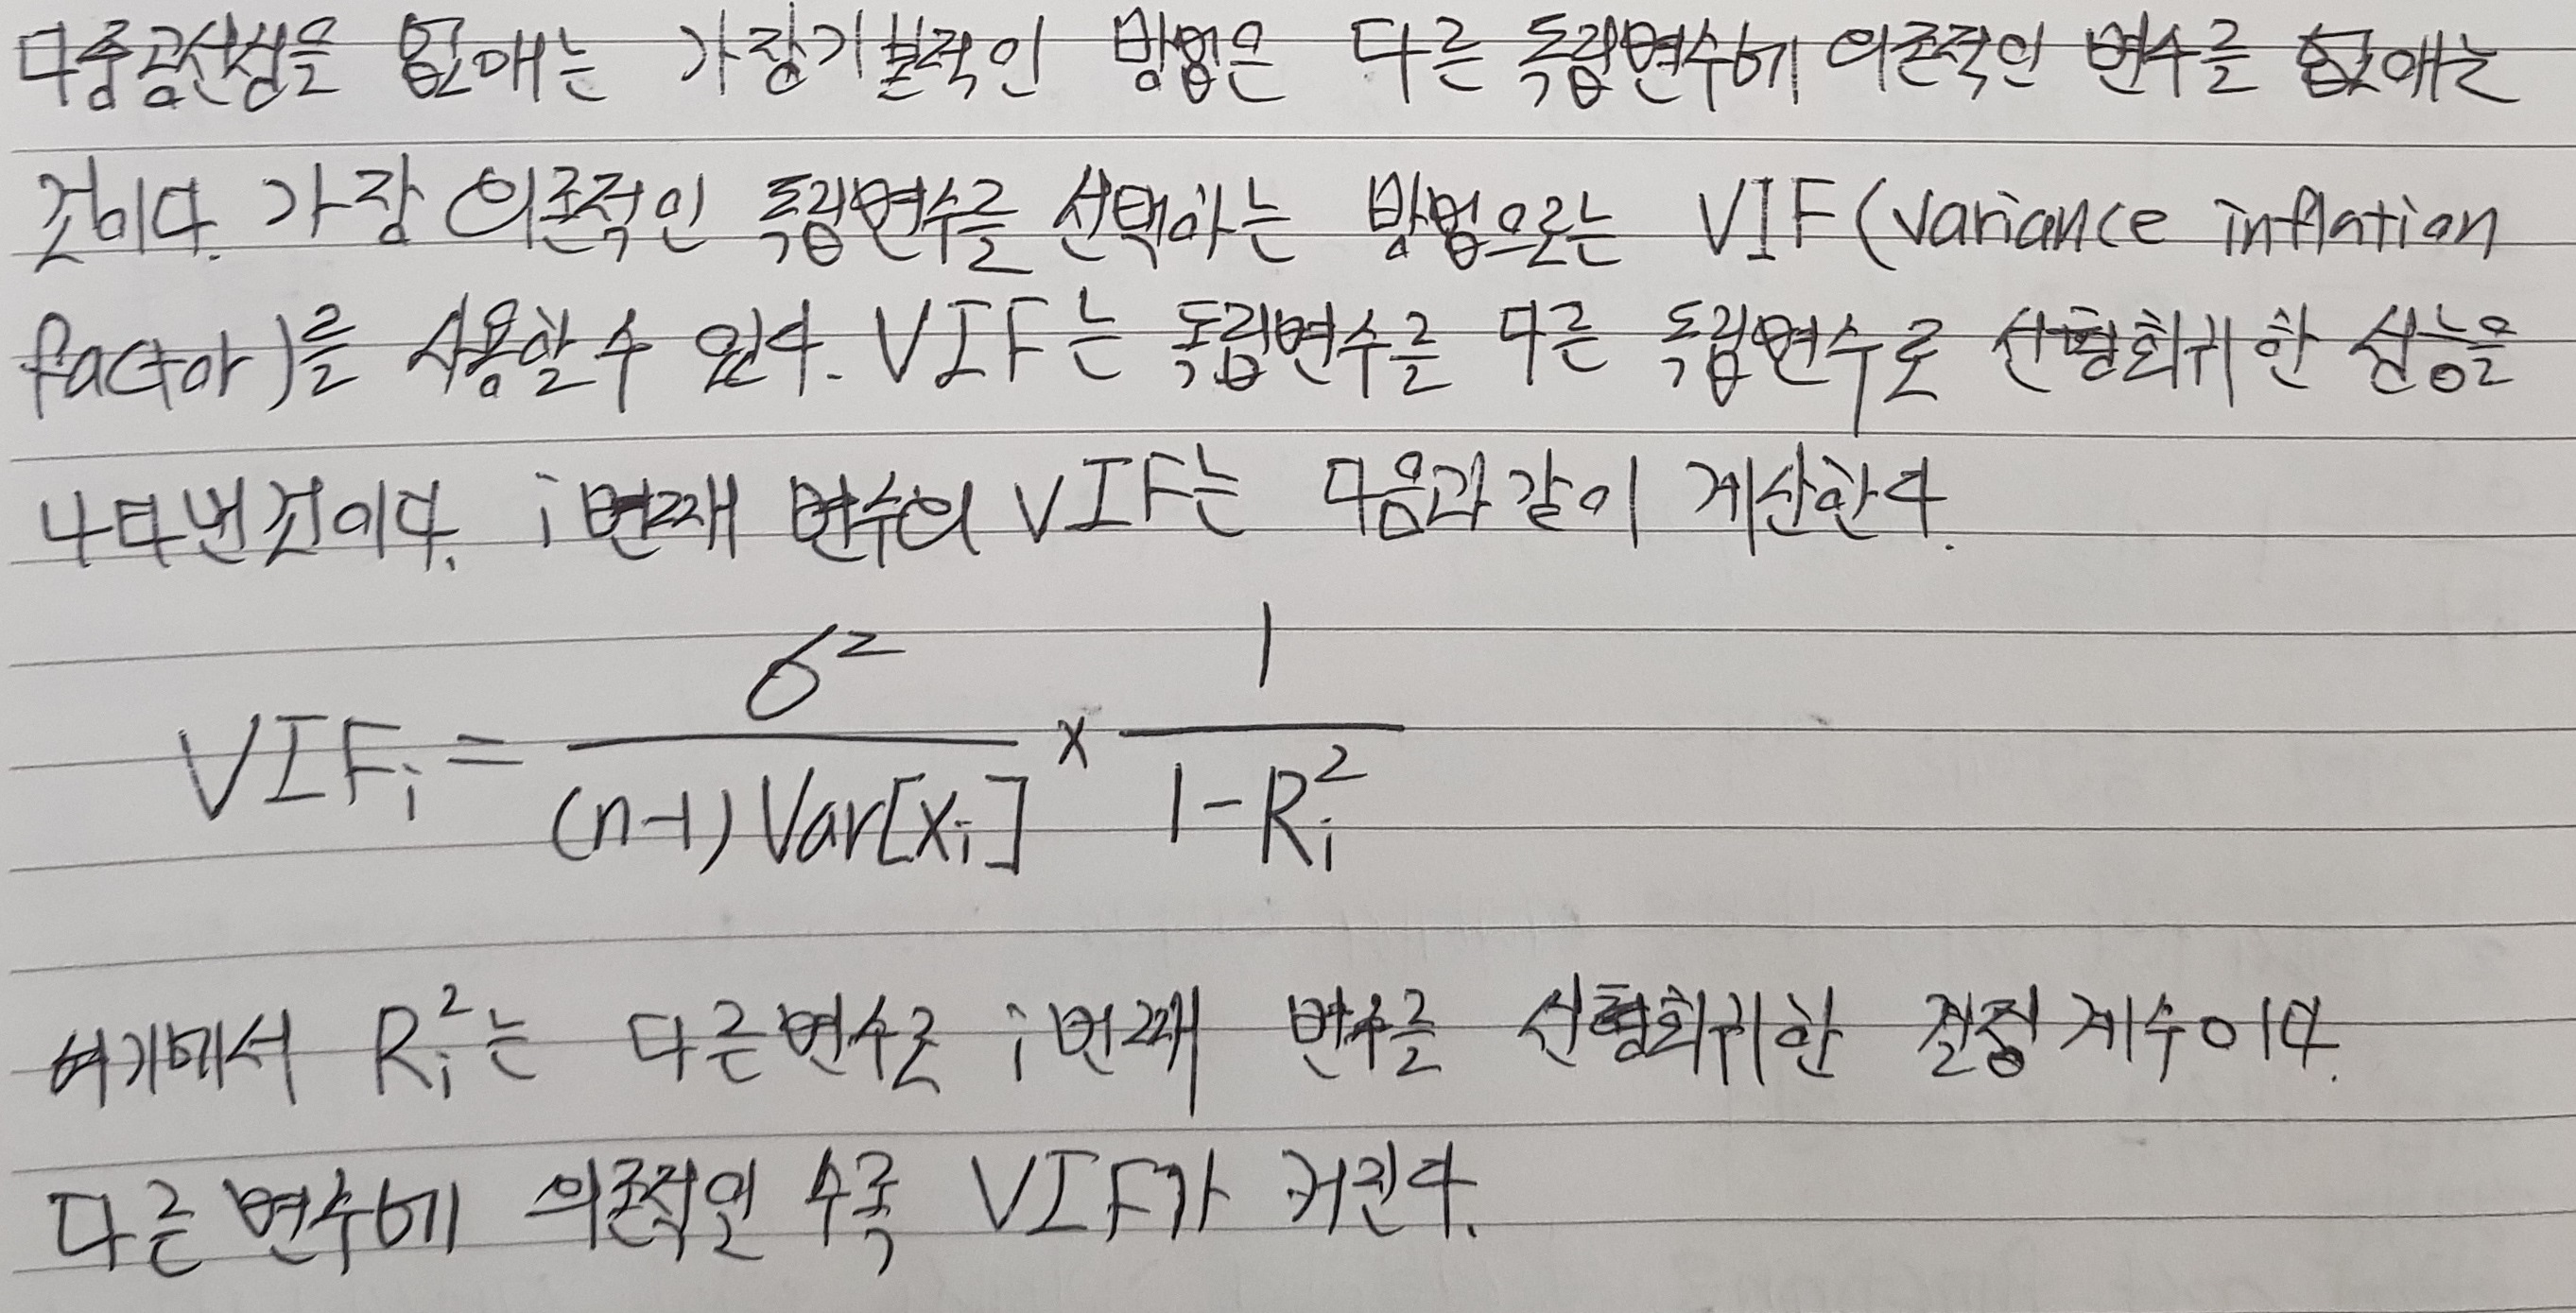 다중공선성을 없애는 가장 기본적인 방법은 다른 독립변수에 의존적인 변수를 없애는
것이다. 가장 의존적인 독립변수를 선택하는 방법으로는 VIF(Variance inflation
factor)를 사용할 수 있다. VIF는 독립변수를 다른 독립변수로 선형회귀한 성능을
나타낸 것이다. i번째 변수의 VIF는 다음과 같이 계산한다.
VIFᵢ = σ² / ((n-1)Var[Xᵢ]) × 1 / (1-Rᵢ²)
여기에서 Rᵢ²는 다른 변수로 i번째 변수를 선형회귀한 결정계수이다.
다른 변수에 의존적일 수록 VIF가 커진다.